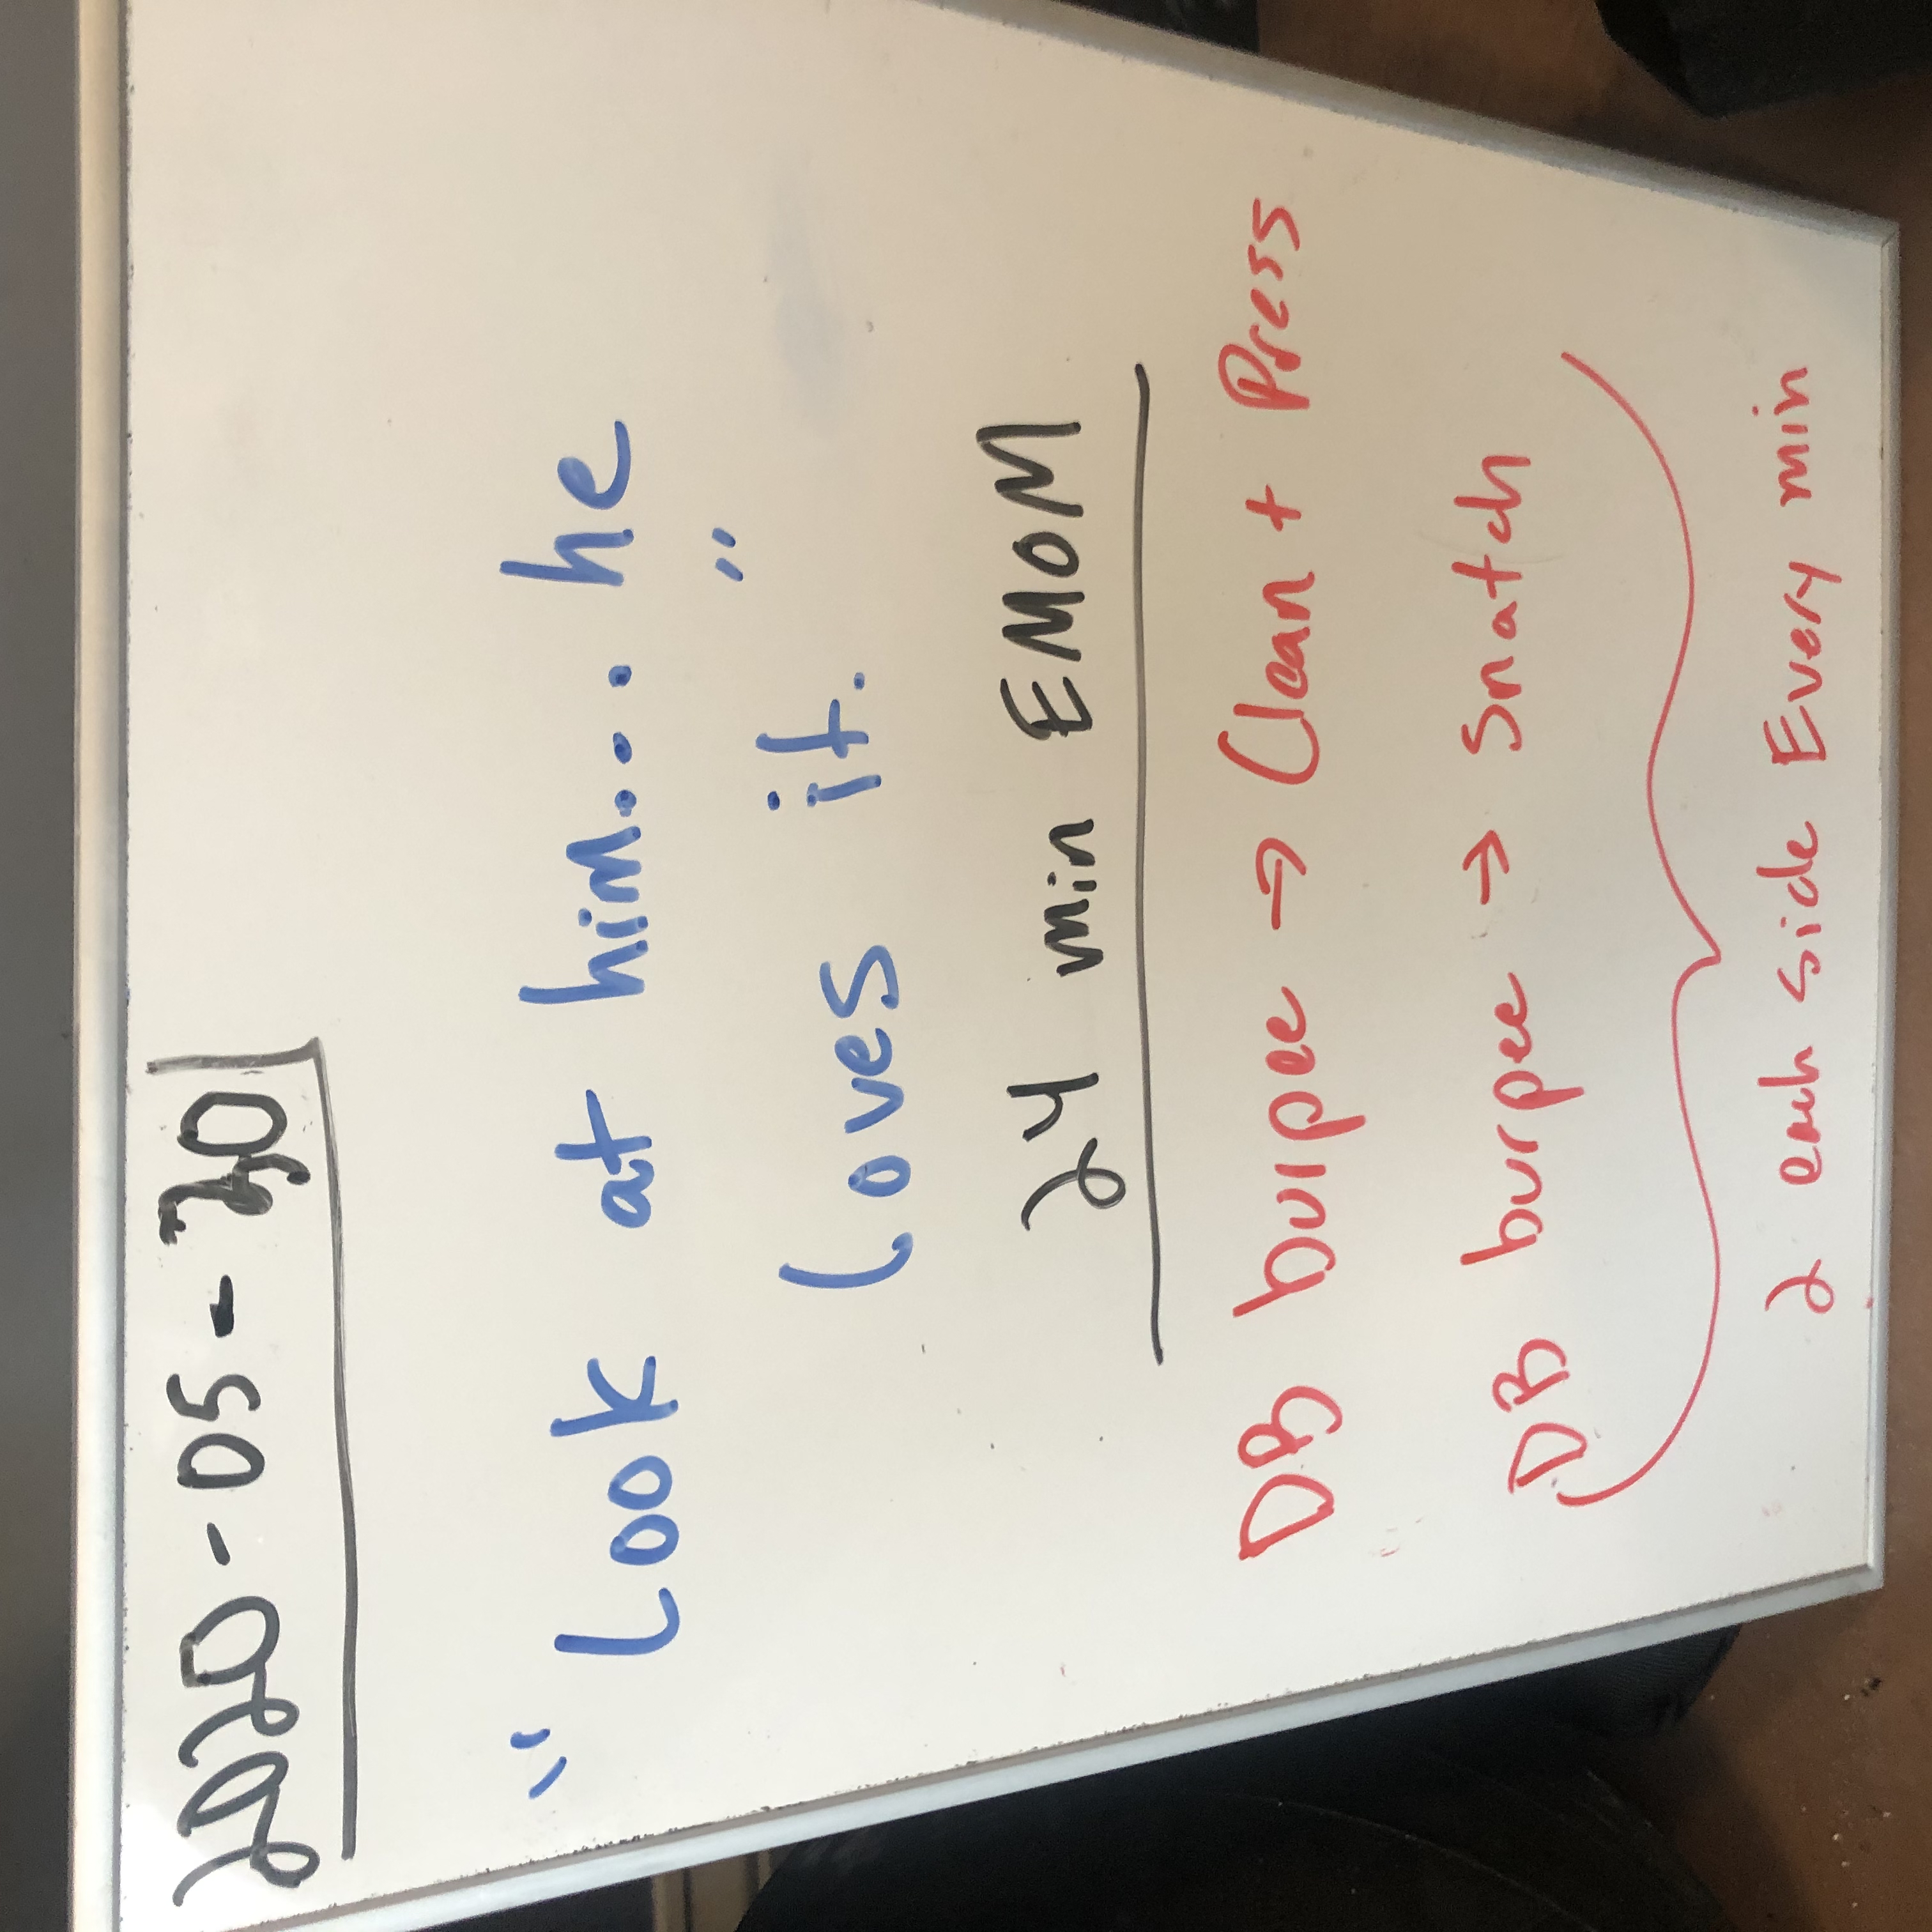 2020-05-30
"Look at him... he
loves it."
24 min EMOM
DB burpee → Clean + Press
DB burpee → Snatch
2 each side Every min